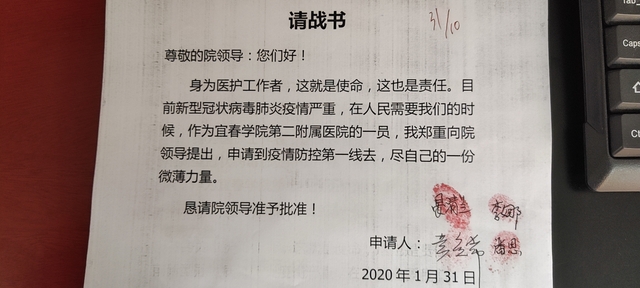 请战书
31/10
尊敬的院领导：您们好！
身为医护工作者，这就是使命，这也是责任。目
前新型冠状病毒肺炎疫情严重，在人民需要我们的时
候，作为宜春学院第二附属医院的一员，我郑重向院
领导提出，申请到疫情防控第一线去，尽自己的一份
微薄力量。
恳请院领导准予批准！
李娜
申请人：
2020年1月31日
Caps